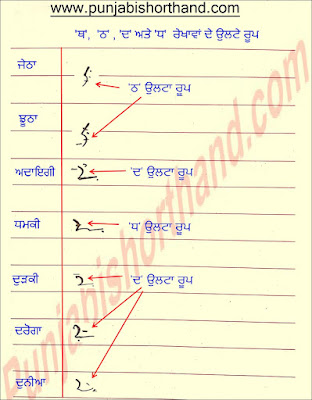 www.punjabishorthand.com
'ਥ', 'ਠ', 'ਦ' ਅਤੇ 'ਧ' ਰੇਖਾਵਾਂ ਦੇ ਉਲਟੇ ਰੂਪ
ਜੇਠਾ
'ਠ' ਉਲਟਾ ਰੂਪ
ਝੂਠਾ
ਅਦਾਇਗੀ 'ਦ' ਉਲਟਾ ਰੂਪ
ਧਮਕੀ 'ਧ' ਉਲਟਾ ਰੂਪ
ਦੁੜਕੀ 'ਦ' ਉਲਟਾ ਰੂਪ
ਦਰੋਗਾ
ਦੁਨੀਆ
Punjabishorthand.com